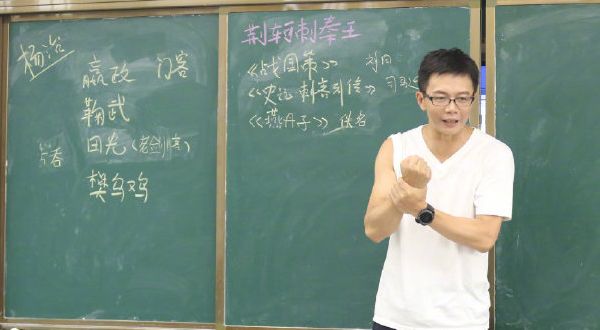 嬴政 门客
鞠武
田光(老剑客)
樊乌鸡
荆轲刺秦王
《战国策》 刘向
《史记 刺客列传》 司马迁
《燕丹子》 佚名